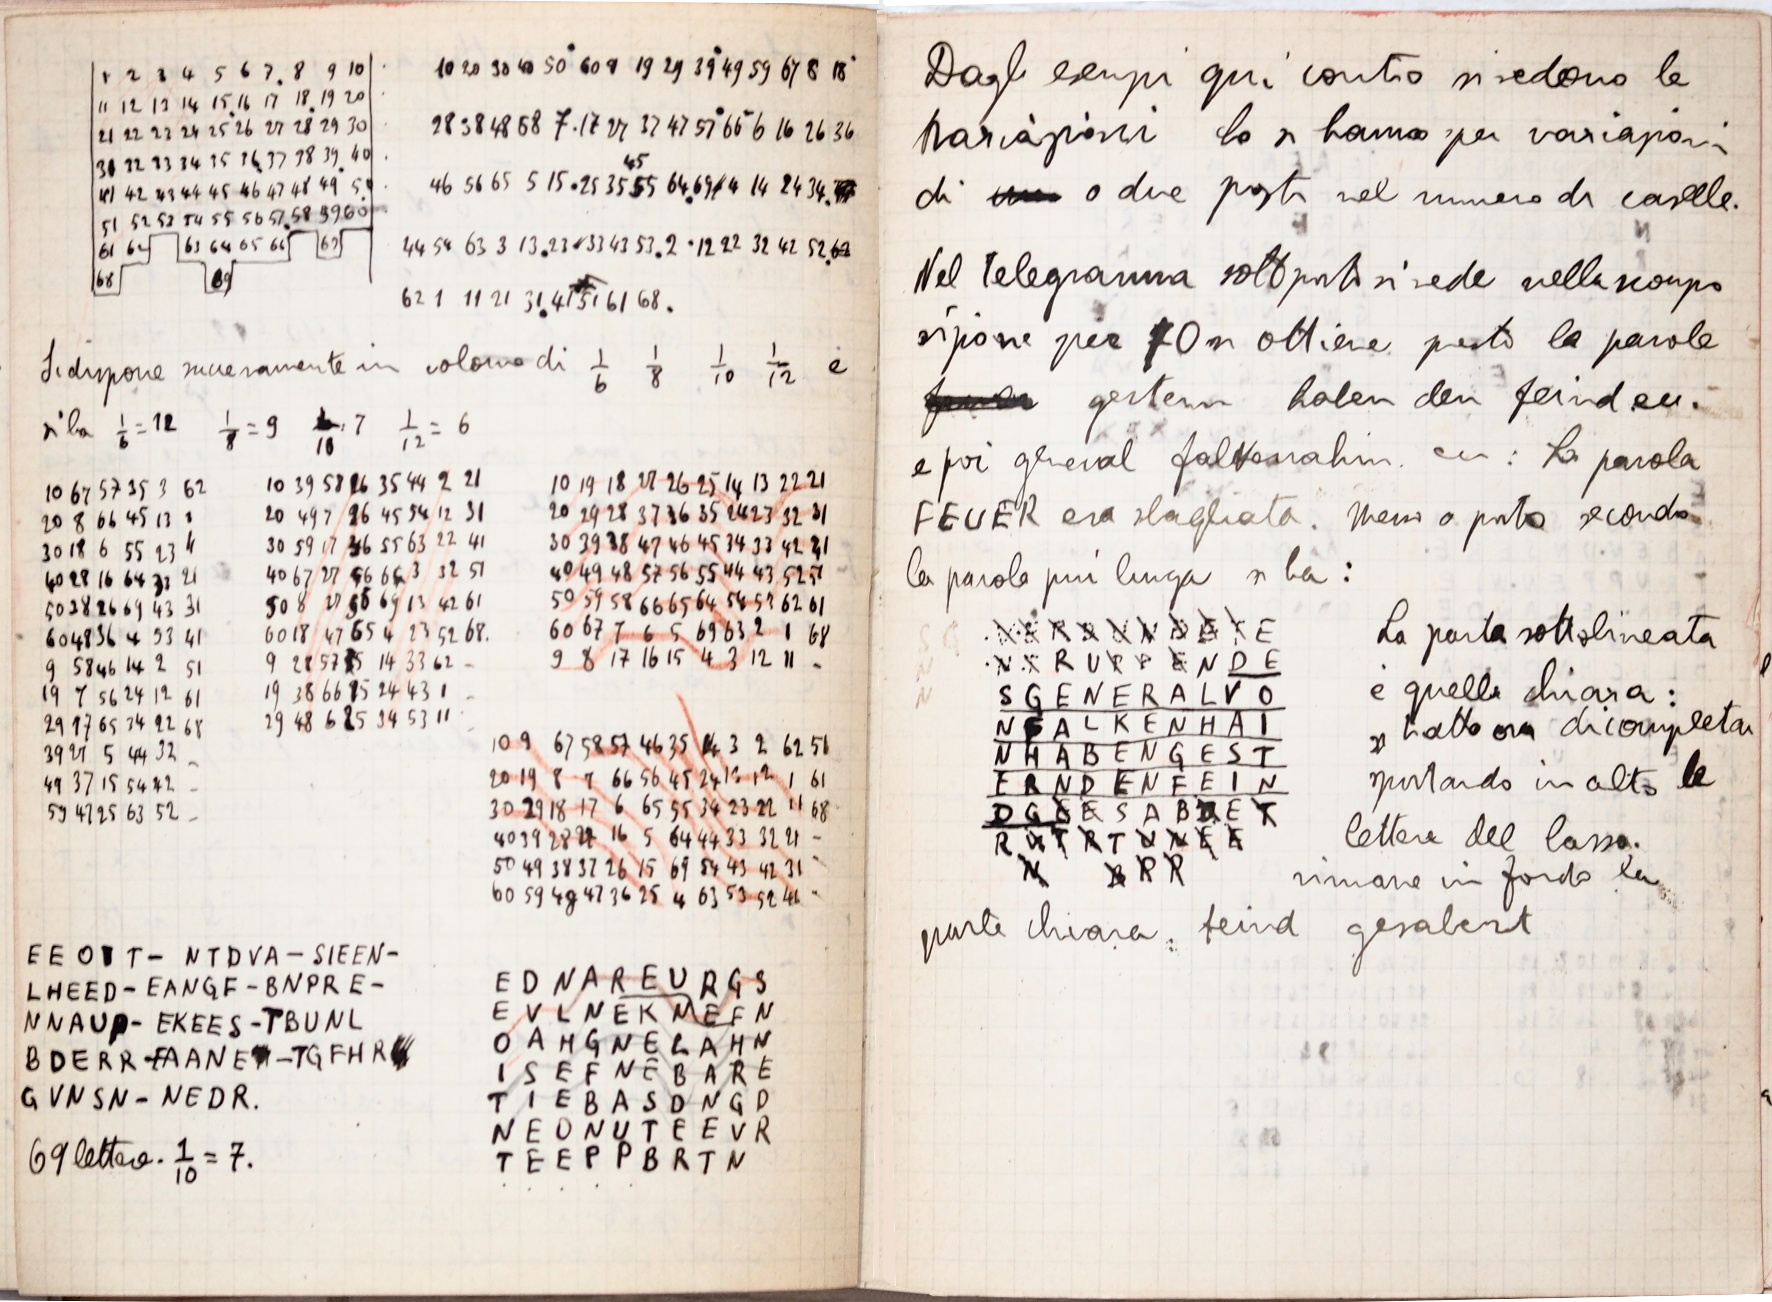 1 2 3 4 5 6 7 8 9 10
11 12 13 14 15 16 17 18 19 20
21 22 23 24 25 26 27 28 29 30
31 32 33 34 35 36 37 38 39 40
41 42 43 44 45 46 47 48 49 50
51 52 53 54 55 56 57 58 59 60
61 62 63 64 65 66 67
68 69
10 20 30 40 50 60 9 19 29 39 49 59 67 8 18
28 38 48 58 7 17 27 37 47 57 66 6 16 26 36
45
46 56 65 5 15 25 35 55 64 69 4 14 24 34
44 54 63 3 13 23 33 43 53 2 12 22 32 42 52
62 1 11 21 31 41 51 61 68.
Si dispone successivamente in colonne di 1/6 1/8 1/10 1/12 e
si ha 1/6 = 12 1/8 = 9 1/10 = 7 1/12 = 6
10 67 57 35 3 62
20 8 66 45 13 1
30 18 6 55 23 11
40 28 16 64 33 21
50 38 26 69 43 31
60 48 36 4 53 41
9 58 46 14 2 51
19 7 56 24 12 61
29 17 65 34 22 68
39 27 5 44 32 -
49 37 15 54 42 -
59 47 25 63 52 -
10 39 58 26 35 44 2 21
20 49 7 36 45 54 12 31
30 59 17 46 55 63 22 41
40 67 27 56 64 3 32 51
50 8 37 65 69 13 42 61
60 18 47 65 4 23 52 68.
9 28 57 5 14 33 62 -
19 38 66 15 24 43 1 -
29 48 6 25 34 53 11
10 19 18 27 26 25 14 13 22 21
20 29 28 37 36 35 24 23 32 31
30 39 38 47 46 45 34 33 42 41
40 49 48 57 56 55 44 43 52 51
50 59 58 66 65 64 54 53 62 61
60 67 7 6 5 69 63 2 1 68
9 8 17 16 15 4 3 12 11 -
10 9 67 58 57 46 35 14 3 2 62 51
20 19 8 7 66 56 45 24 13 12 1 61
30 29 18 17 6 65 55 34 23 22 11 68
40 39 28 27 16 5 64 44 33 32 21 -
50 49 38 37 26 15 69 54 43 42 31 -
60 59 48 47 36 25 4 63 53 52 41 -
EEOIT- NTDVA-SIEEN-
LHEED-EANGF-BNPRE-
NNAUP- EKEES-TBUNL
BDERR-FAANE-TGFHR
GVNSN-NEDR.
69 lettere. 1/10 = 7.
E D N A R E U R G S
E V L N E K N E F N
O A H G N E L A H N
I S E F N E B A R E
T I E B A S D N G D
N E D N U T E E V R
T E E P P B R T N
Dagli esempi qui contro si vedono le
variazioni che si hanno per variazioni
di o due posti nel numero di caselle.
Nel telegramma sottoposto si vede nella scompo
sizione per 10 si ottiene presto la parole
gestern haben den feind ecc.
e poi general falkenhain. ecc: La parola
FEUER era sbagliata. Messo a posto secondo
la parole più lunga si ha:
N E R D U N D E T E
N E R U P P E N D E
S G E N E R A L V O
N F A L K E N H A I
N H A B E N G E S T
E R N D E N F E I N
D G E E S A B D E T
R U T R T U N E E
N B R R
La parte sottolineata
è quella chiara:
si tratta ora di completar
spostando in alto le
lettere del basso.
rimane in fondo la
parte chiara. feind gesabert